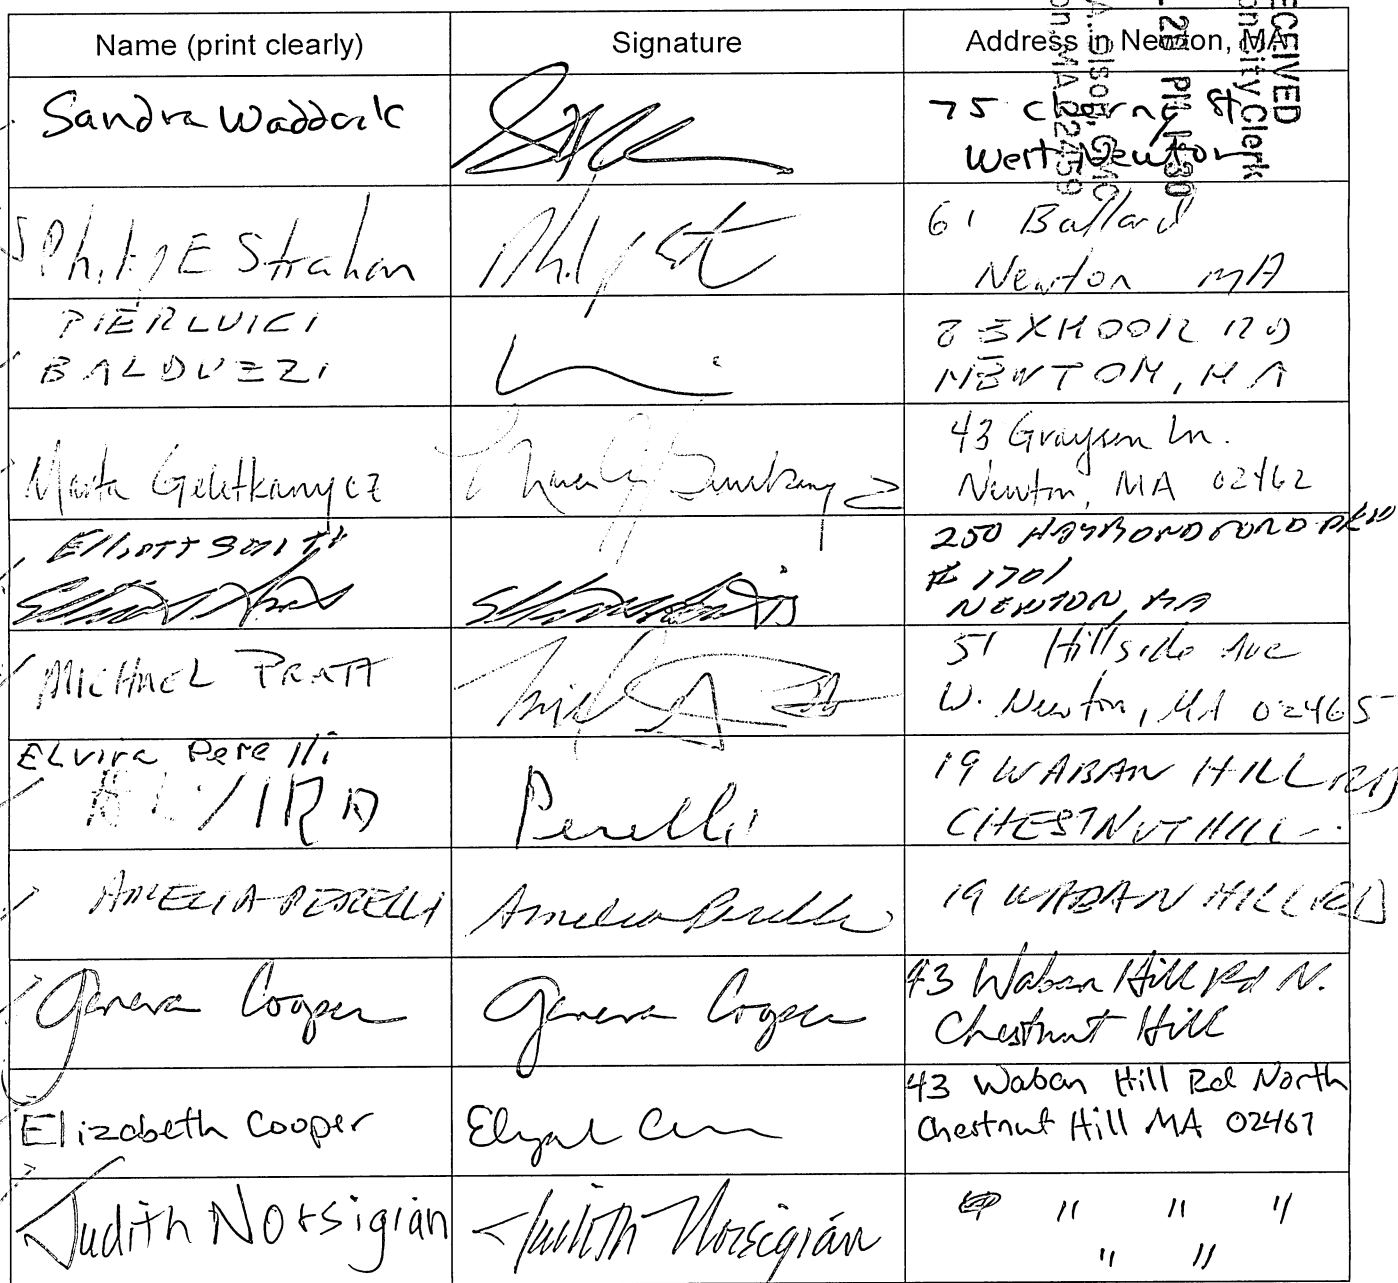 Name (print clearly) Signature Address in Newton, MA
RECEIVED
Newton City Clerk
PM 1:30
A. Olson, CMC
Newton, MA 02459
Sandra Waddock 75 Cherry St
West Newton
Philip E Strahan 61 Ballard
Newton MA
PIERLUIGI
BALDUZZI
8 EXMOOR RD
NEWTON, MA
Marta Geletkanycz
43 Grayson Ln.
Newton, MA 02462
Elliott Smith
250 HAMMOND POND PKW
# 1701
NEWTON, MA
MICHAEL PRATT
51 Hillside Ave
W. Newton, MA 02465
ELvira Perelli
Perelli
19 WABAN HILL RD
CHESTNUT HILL
AMELIA PERELLI Amelia Perelli 19 WABAN HILL RD
Geneva Cooper Geneva Cooper
43 Waban Hill Rd N.
Chestnut Hill
Elizabeth Cooper
43 Waban Hill Rd North
Chestnut Hill MA 02467
Judith Norsigian Judith Norsigian " " "
" "